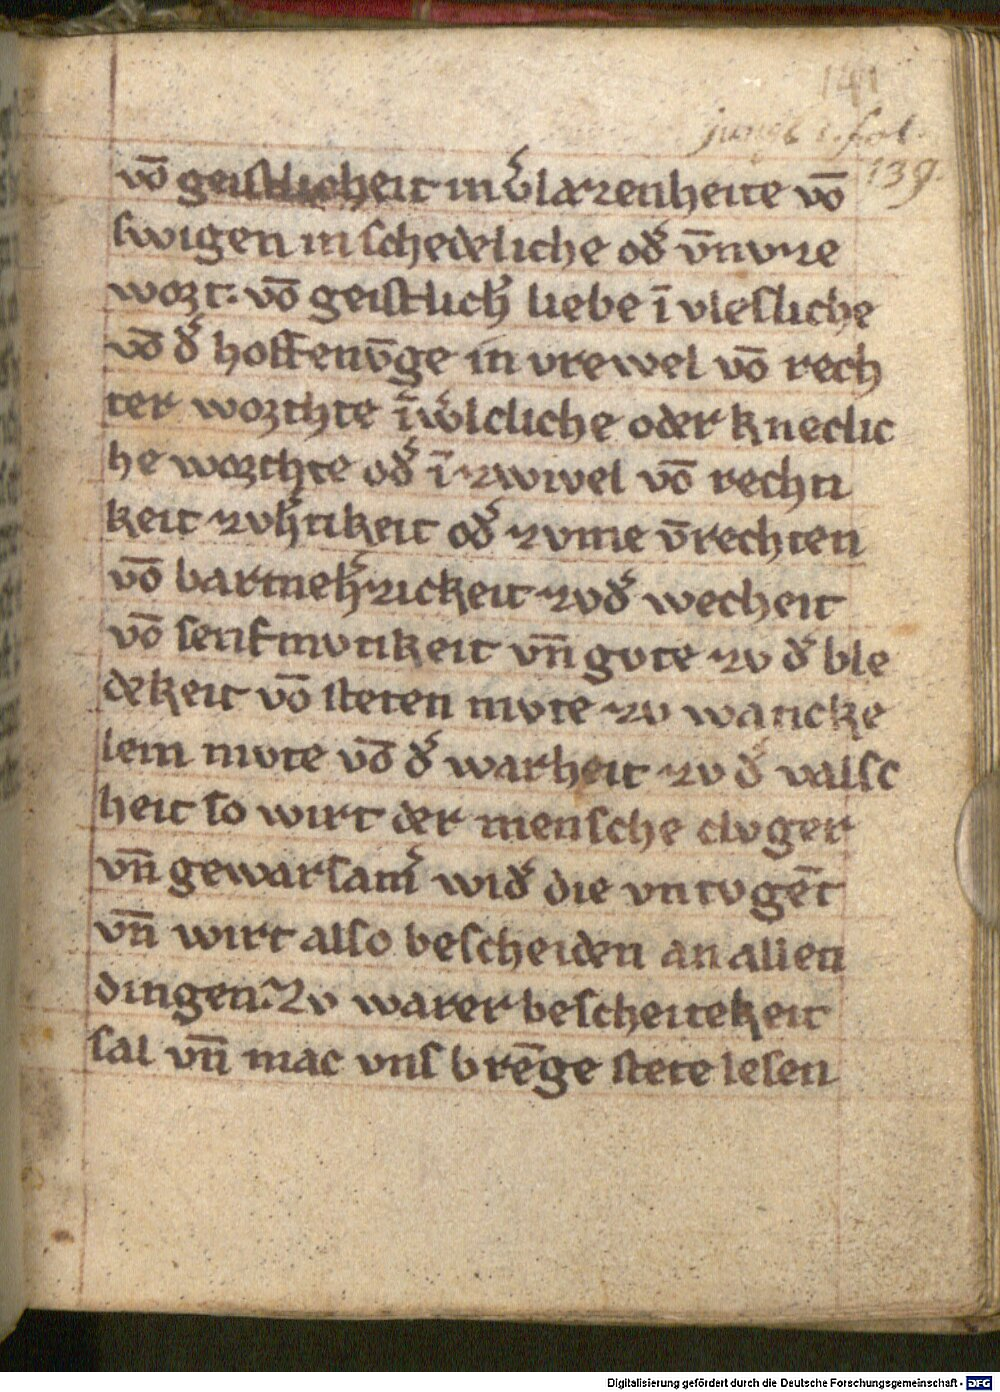 141
fol.
139.
vō geistlicheit in v̾lazenheite vō
swigen in schedeliche od̾ v̄nvze
wozt. vō geistlich̾ liebe ī vlesliche
vō d̾ hoffenv̄ge in vrewel vō rech
ter wozthte ī w̾lcliche oder kneclic
he wozthte od̾ ī zwivel vō rechti
keit zvh̾tikeit od̾ zvme v̄rechten
vō barmeh̾zickeit zvd̾ wecheit
vō senfmvtikeit vn̄ gvte zv d̾ ble
dekeit vō steten mvte zv wancke
lem mvte vō d̾ warheit zv d̾ valsc
heit so wirt der mensche clvger
vn̄ gewarsam̾ wid̾ die vntvgēt
vn̄ wirt also bescheiden an allen
dingen. Zv warer bescheitekeit
sal vn̄ mac vns brēge stete lesen
Digitalisierung gefördert durch die Deutsche Forschungsgemeinschaft - DFG